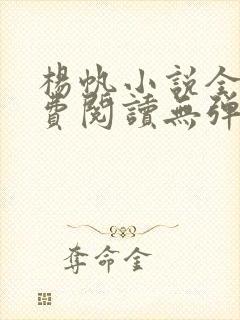 楊帆小説全
費閱讀無彈
奪命金